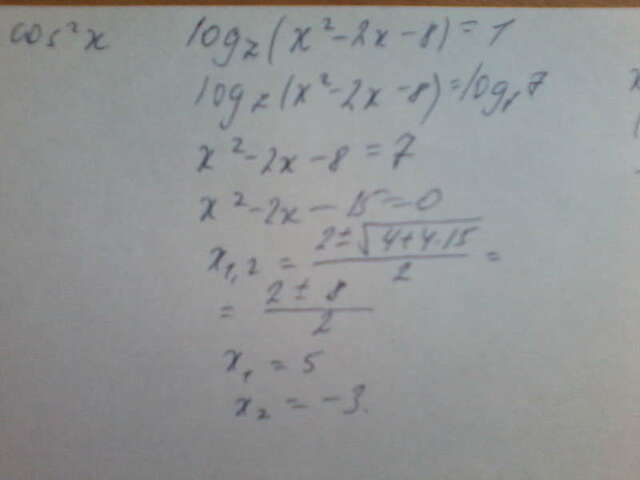 cos²x
log₇(x²-2x-8)=1
log₇(x²-2x-8)=log₇7
x²-2x-8=7
x²-2x-15=0
x₁,₂ = (2±√(4+4·15))/2 =
= (2±8)/2
x₁ = 5
x₂ = -3.